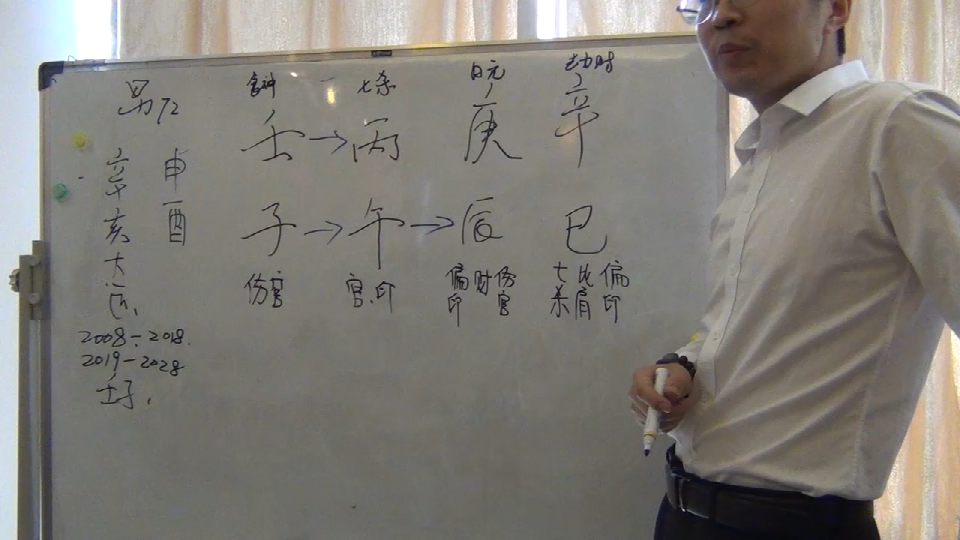 男72
食神 七杀 日元 劫财
壬→丙 庚 辛
子→午→辰 巳
伤官 官.印 偏印 财 伤官 七杀 比肩 偏印
辛亥大运.
申酉
2008-2018.
2019-2028
壬子.